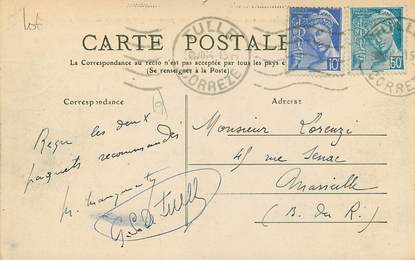 lot
TULLE
CORREZE
CARTE POSTALE
La Correspondance au recto n'est pas acceptée par tous les pays
(Se renseigner à la Poste)
10c
50c
Correspondance
Adresse
Reçu les deux
paquets recommandés
Monsieur Lorenzi
45 rue Senac
Marseille
(B. du R.)
Tulle